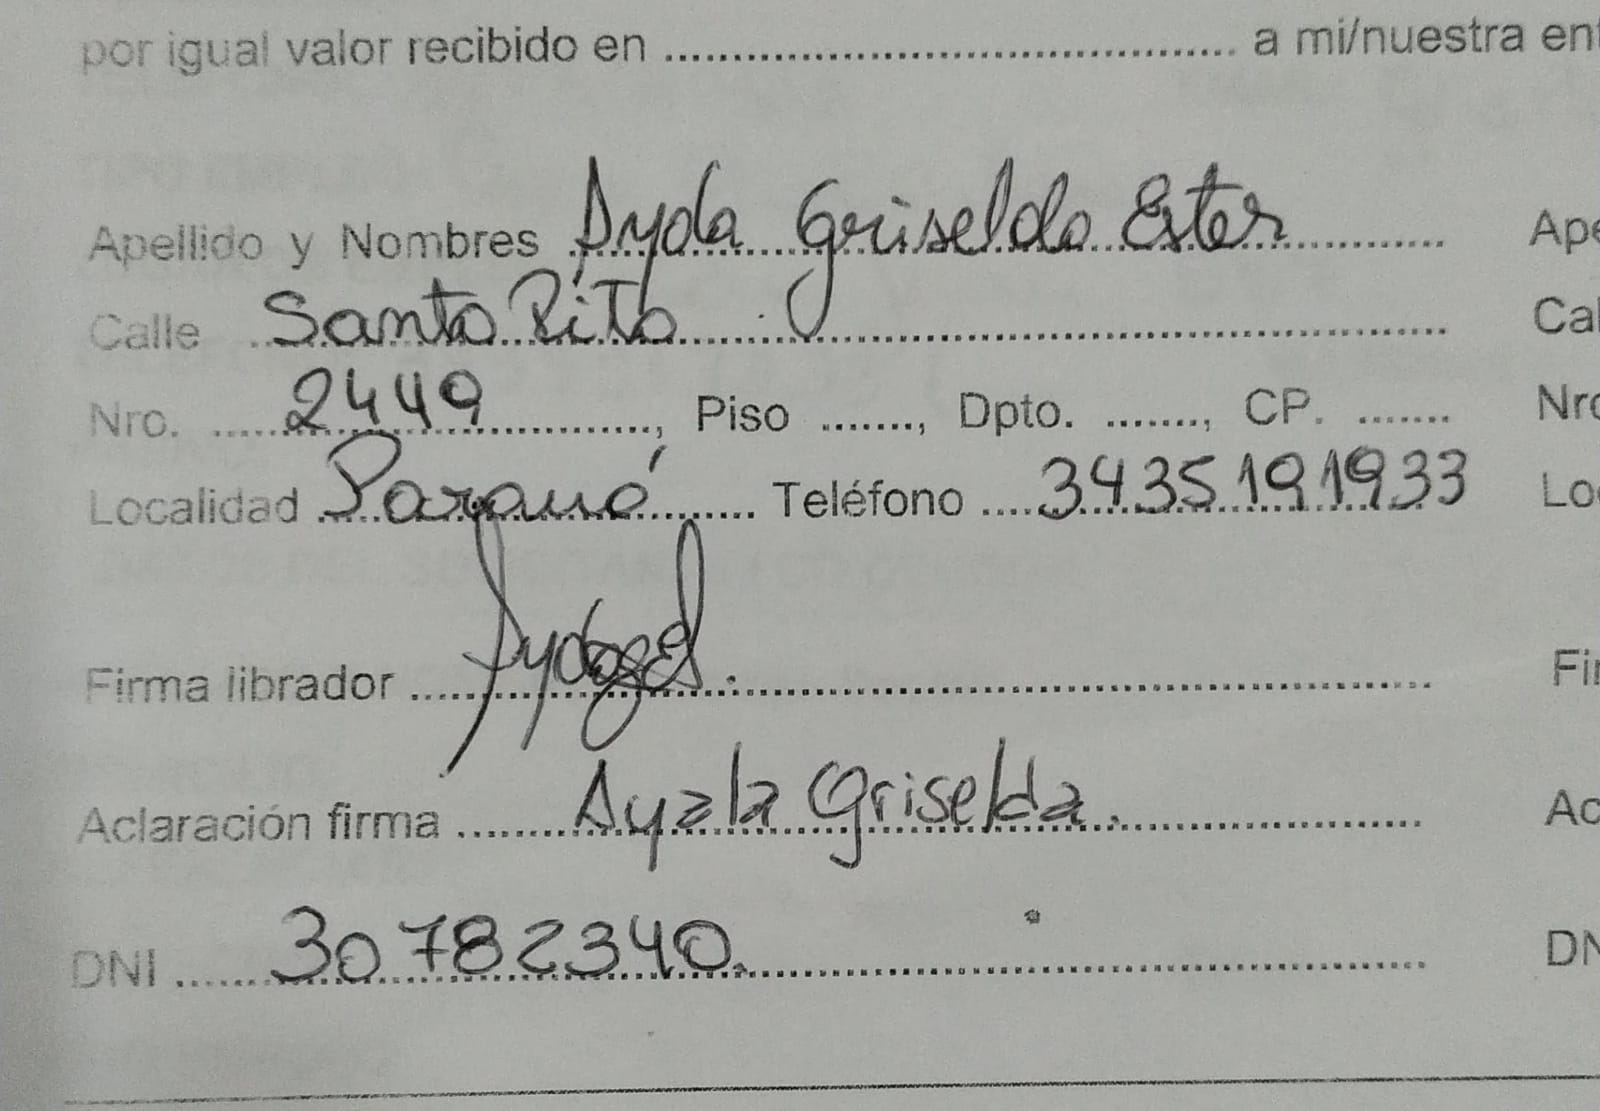 por igual valor recibido en .......................................... a mi/nuestra ent
Apellido y Nombres Ayala Griselda Ester Ape
Calle Santa Rita Cal
Nro. 2449, Piso ......., Dpto. ......., CP. ....... Nro
Localidad Paraná Teléfono 3435191933 Lo
Firma librador .......................................... Fi
Aclaración firma Ayala Griselda. Ac
DNI 30782340. DN